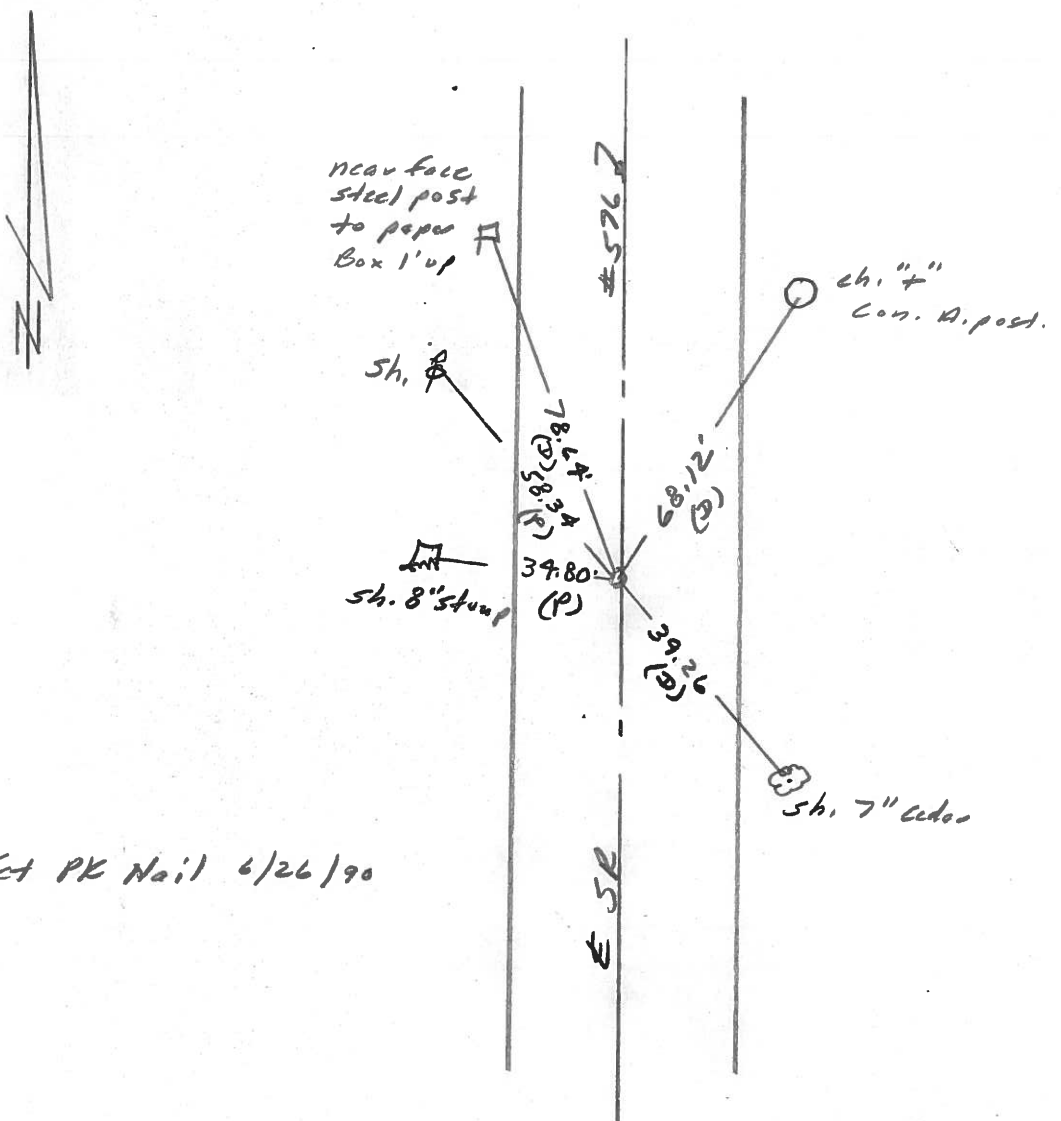 N
near face
steel post
to paper
Box 1' up
ch. "+"
Con. A. post.
sh.
78.64'
(D)
58.34
(P)
68.12'
(D)
34.80'
(P)
sh. 8" stump
39.26
(D)
sh. 7" cedar
PK Nail 6/26/90
℄ SR